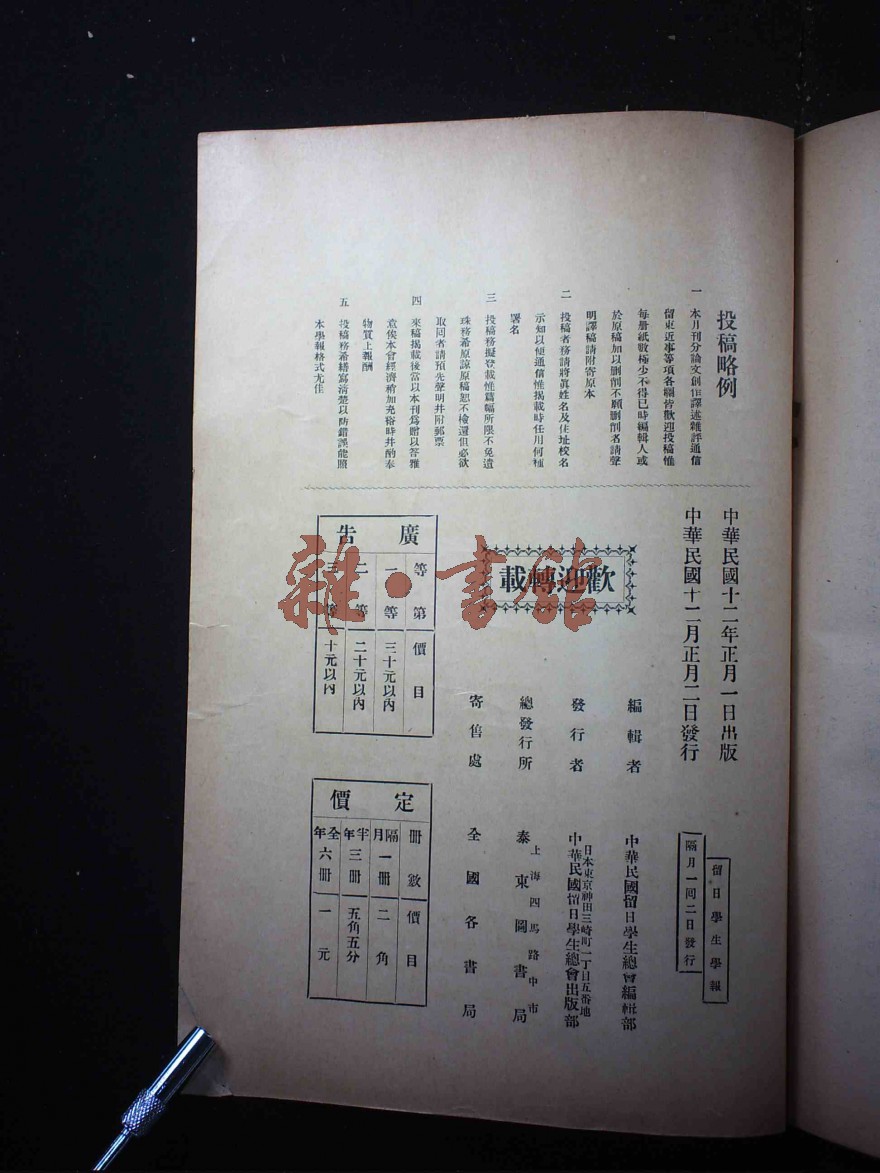 投稿略例
一 本月刊分論文創作譯述雜評通信
留東近事等項各欄皆歡迎投稿惟
每册紙數極少不得已時編輯人或
於原稿加以删削不願删削者請聲
明譯稿請附寄原本
二 投稿者務請將眞姓名及住址校名
示知以便通信惟揭載時任用何種
署名
三 投稿務擬登載惟篇幅所限不免遺
珠務希原諒原稿恕不檢還但必欲
取回者請預先聲明幷附郵票
四 來稿揭載後當以本刊爲贈以答雅
意俟本會經濟稍加充裕時幷酌奉
物質上報酬
五 投稿務希繕寫清楚以防錯誤能照
本學報格式尤佳
中華民國十二年正月一日出版
中華民國十二月正月二日發行
留日學生學報
隔月一回二日發行
編輯者 中華民國留日學生總會編輯部
發行者 日本東京神田三崎町一丁目五番地
中華民國留日學生總會出版部
總發行所 上海四馬路中市
泰東圖書局
寄售處 全國各書局
歡迎轉載
廣告
等第 價目
一等 三十元以內
二等 二十元以內
三等 十元以內
定價
册數 價目
隔月一册 二角
半年三册 五角五分
全年六册 一元
雜·書館